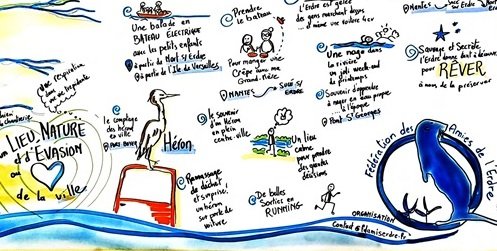 Une balade en
BATEAU ÉLECTRIQUE
avec les petits enfants
à partir de Nort s/ Erdre
à partir de l'île de Versailles
Prendre
le bateau
Pour manger une
Crêpe chez ma
Grand-mère
NANTES SUCÉ S/ ERDRE
L'Erdre est gelée
des gens marchent dessus
une voiture
NANTES
Sauvage et Secrète
l'Erdre donne
pour RÊVER
à nous de la préserver
Une nage dans
la rivière
un joli week end
de printemps
Souvenir d'apprendre
à nager en eau propre
à l'époque
Pont St Georges
une respiration
LIEU NATURE
et d'ÉVASION
au
de la ville
le comptage
des hérons
en ville
PORT BOYER
Héron
le souvenir
d'un Héron
en plein
centre-ville
Un lieu
calme
pour prendre
des grandes
décisions
Ramassage
de déchets
et surprise:
un héron
sur porte de
voiture
De belles
Sorties en
RUNNING
Fédération des Amies de l'Erdre
ORGANISATION